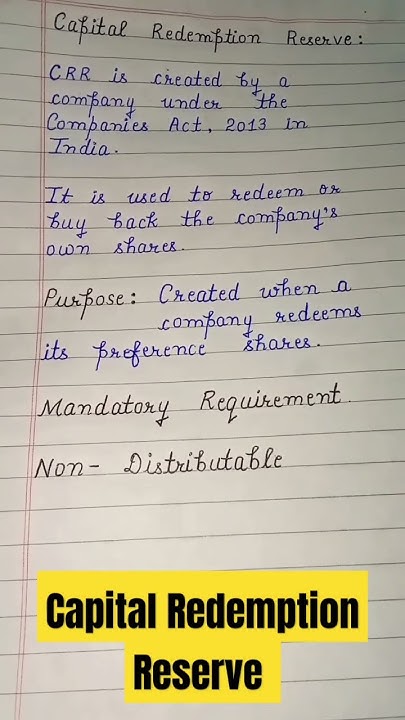 Capital Redemption Reserve:
CRR is created by a
company under the
Companies Act, 2013 in
India.
It is used to redeem or
buy back the company's
own shares.
Purpose: Created when a
company redeems
its preference shares.
Mandatory Requirement
Non- Distributable
Capital Redemption
Reserve